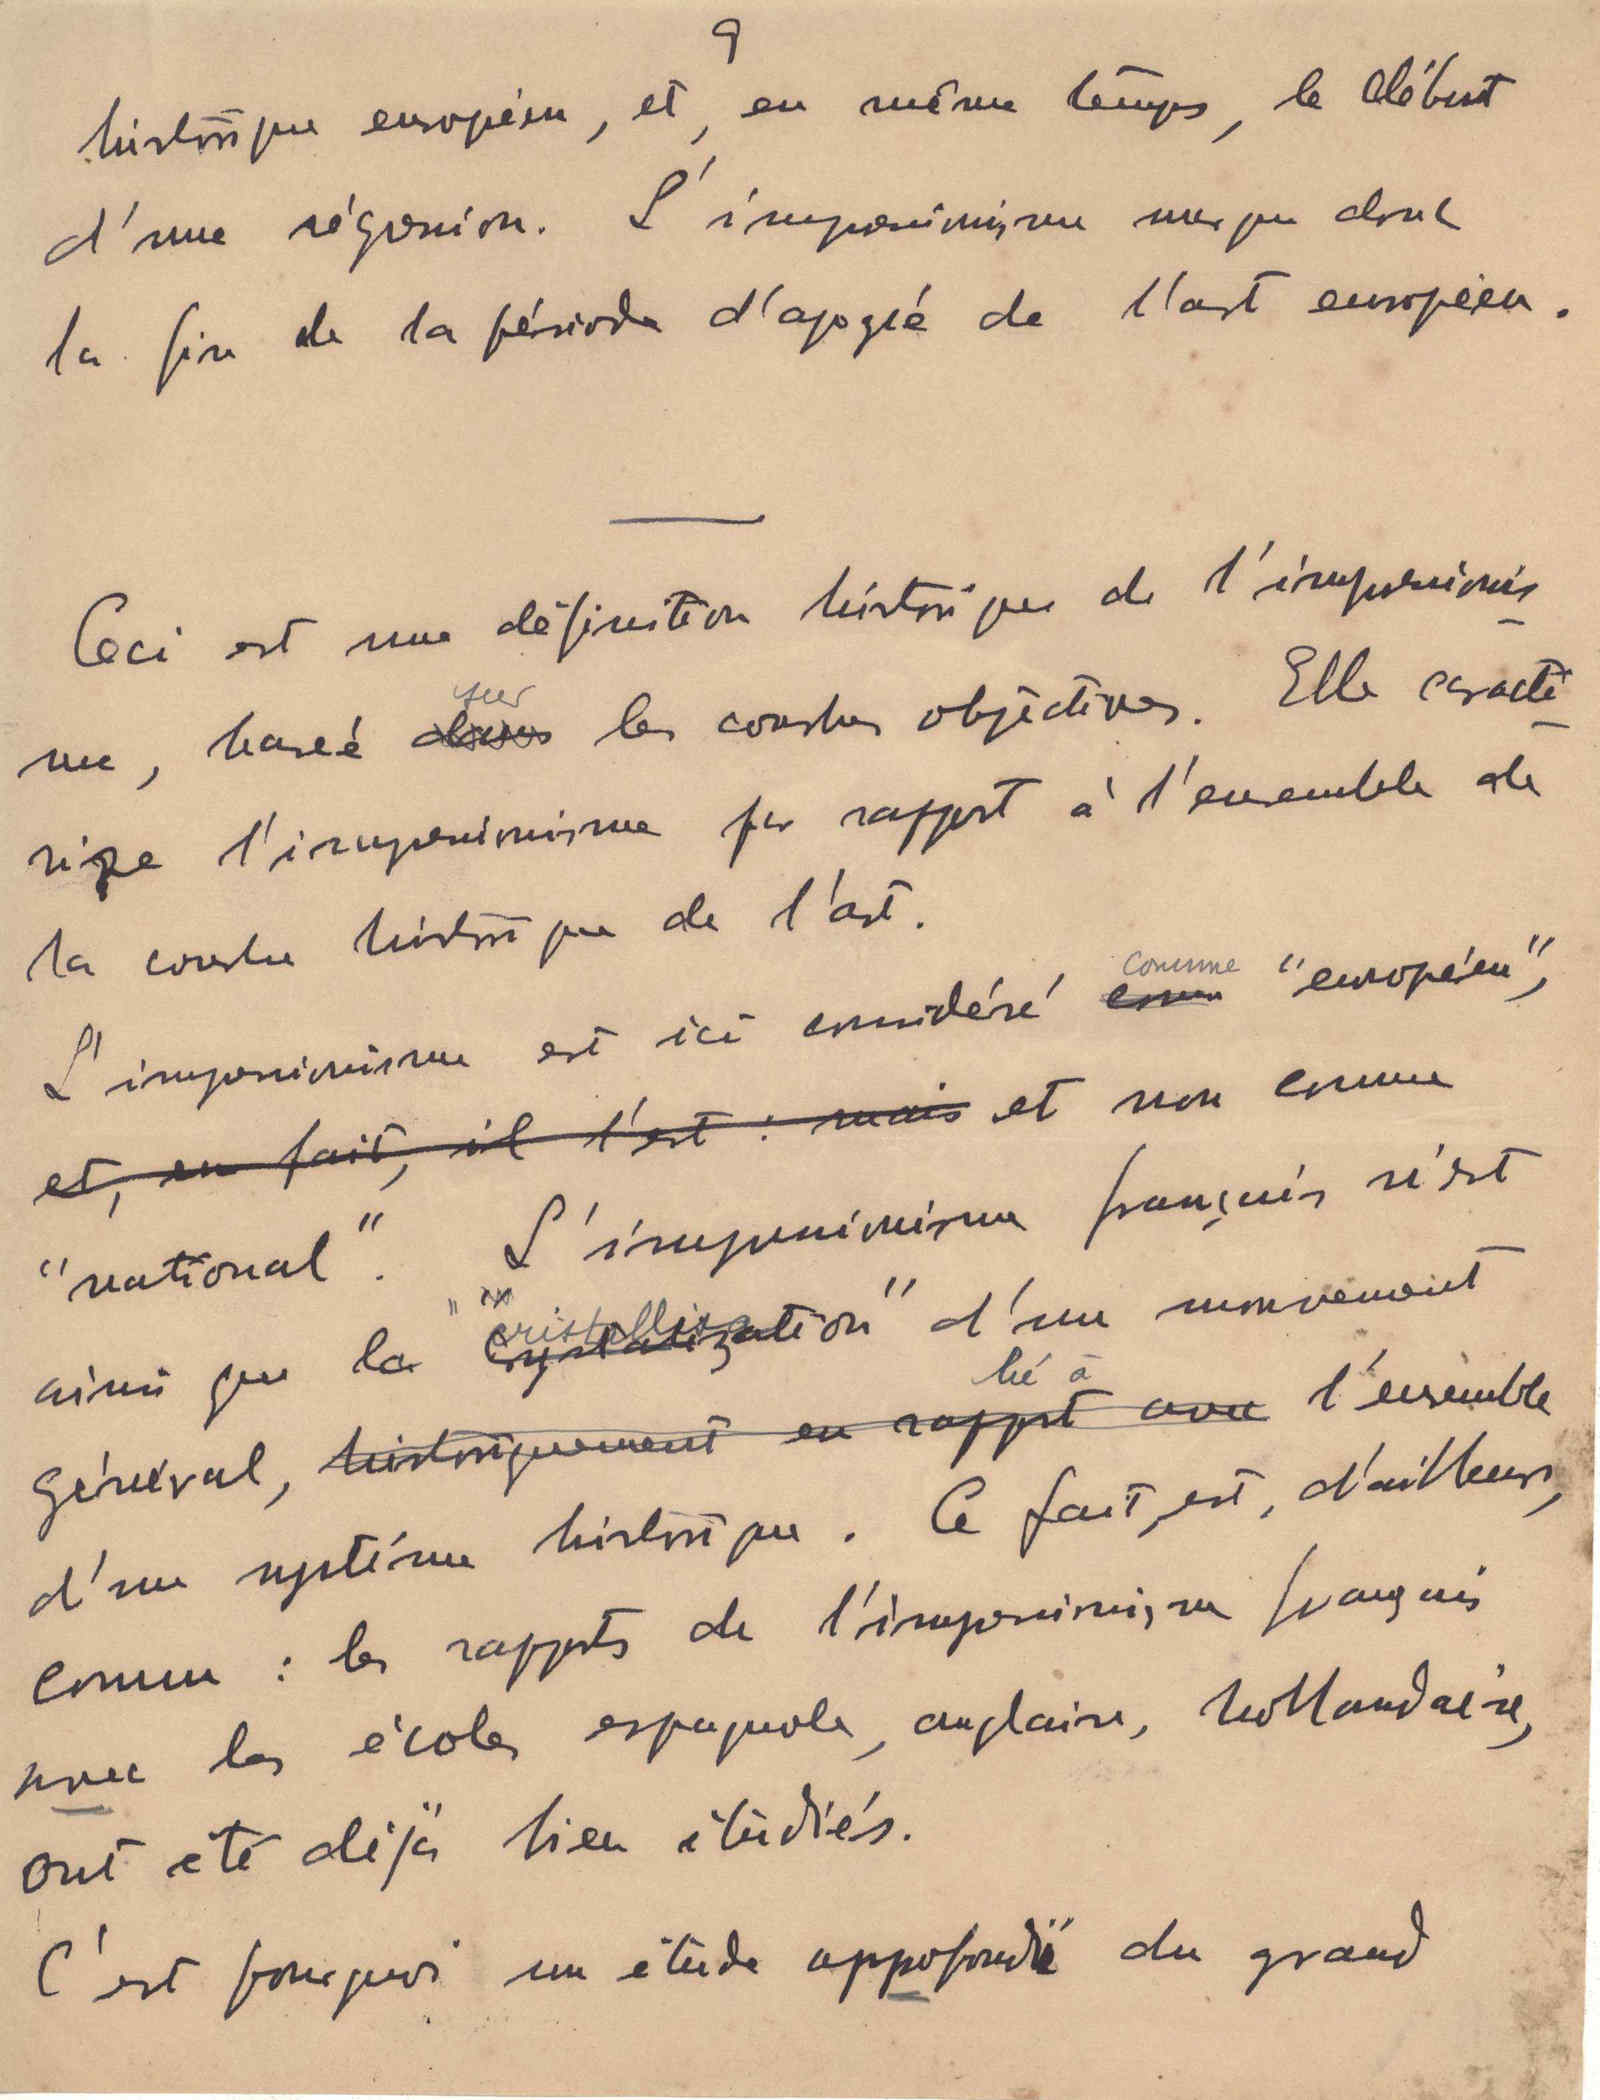 9
historique européen, et, en même temps, le début
d'une régression. L'impressionnisme marque donc
la fin de la période d'apogée de l'art européen.
Ceci est une définition historique de l'impressionnis
me, baseé sur
dans les courbes objectives. Elle caracté
rise l'impressionnisme par rapport à l'ensemble de
la courbe historique de l'art.
comme
L'impressionnisme est ici considéré comm "européen",
et, en fait, il l'est : mais et non comme
"national". L'impressionnisme français n'est
cristallisa
ainsi que la "Crystalization" d'un mouvement
lié à
général, historiquement en rapport avec l'ensemble
d'un système historique. Ce fait, est, d'ailleurs,
connu : les rapports de l'impressionnisme français
avec les écoles espagnole, anglaise, hollandaise,
ont été déjà bien étudiés.
C'est pourquoi un étude appofondie du grand